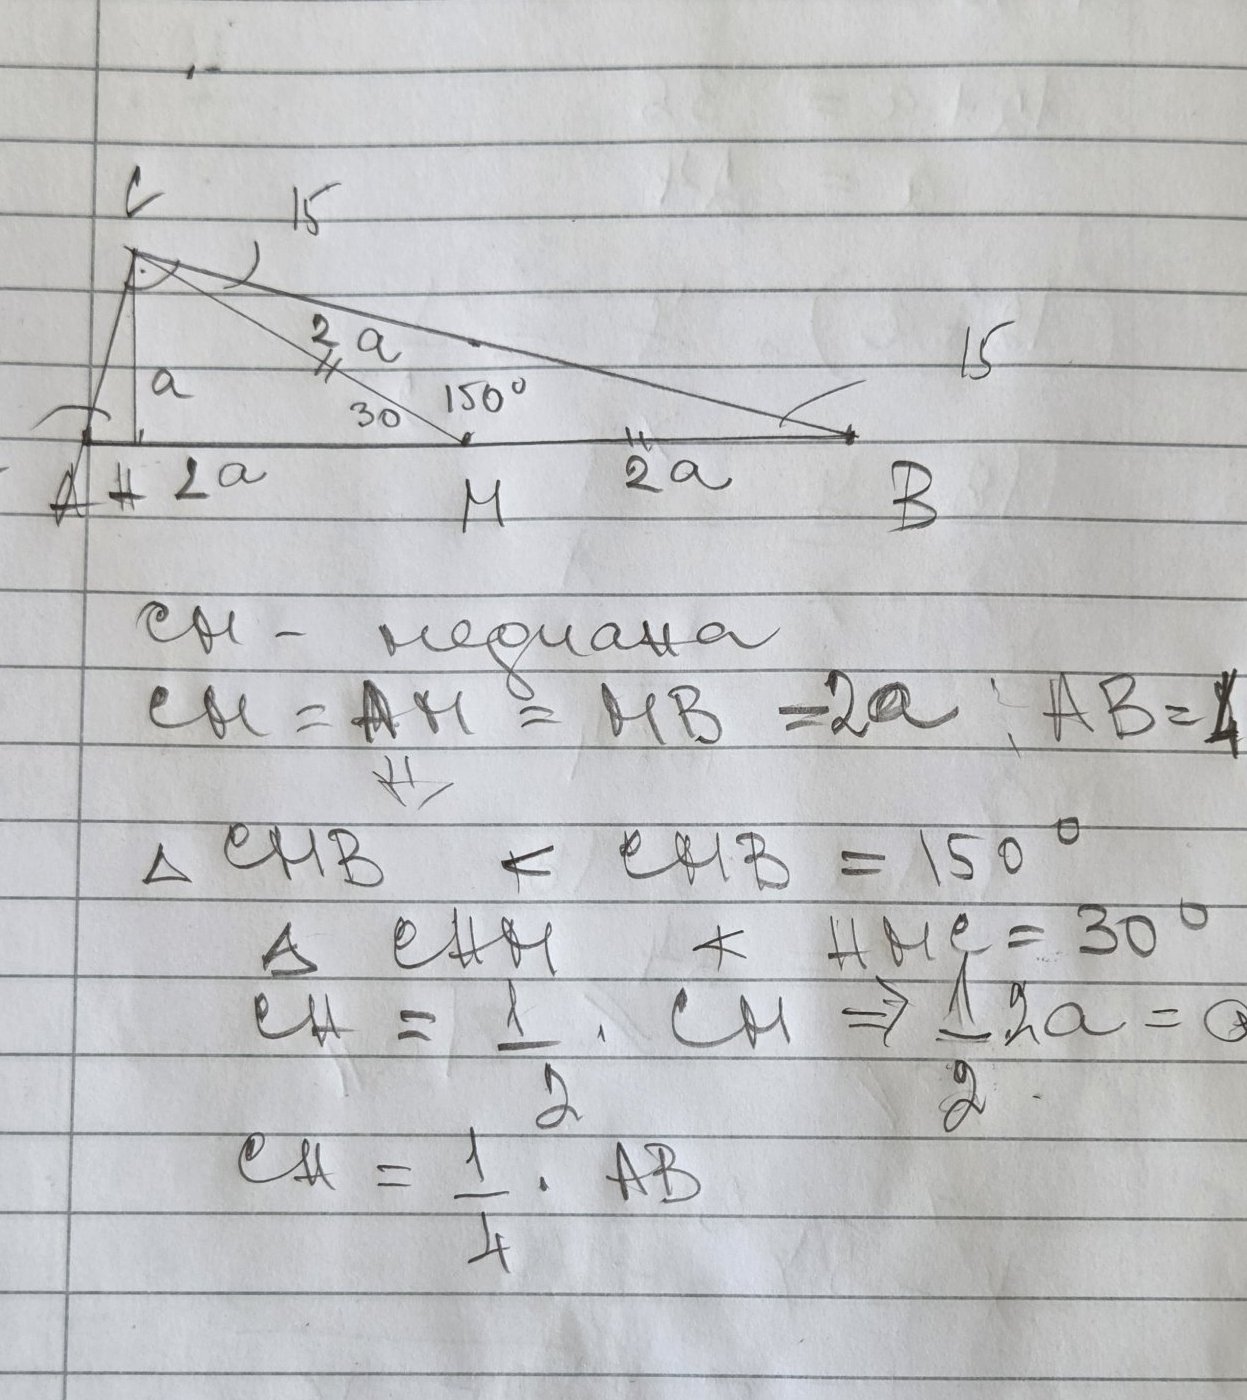 C 15
2a
a
30 150° 15
A H 2a M 2a B
CM - медиана
CM = AM = MB = 2a ; AB = 4
⇓
△ CMB ∢ CMB = 150°
△ CHM ∢ HMC = 30°
CH = 1/2 . CM ⇒ 1/2 2a = a
CH = 1/4 . AB